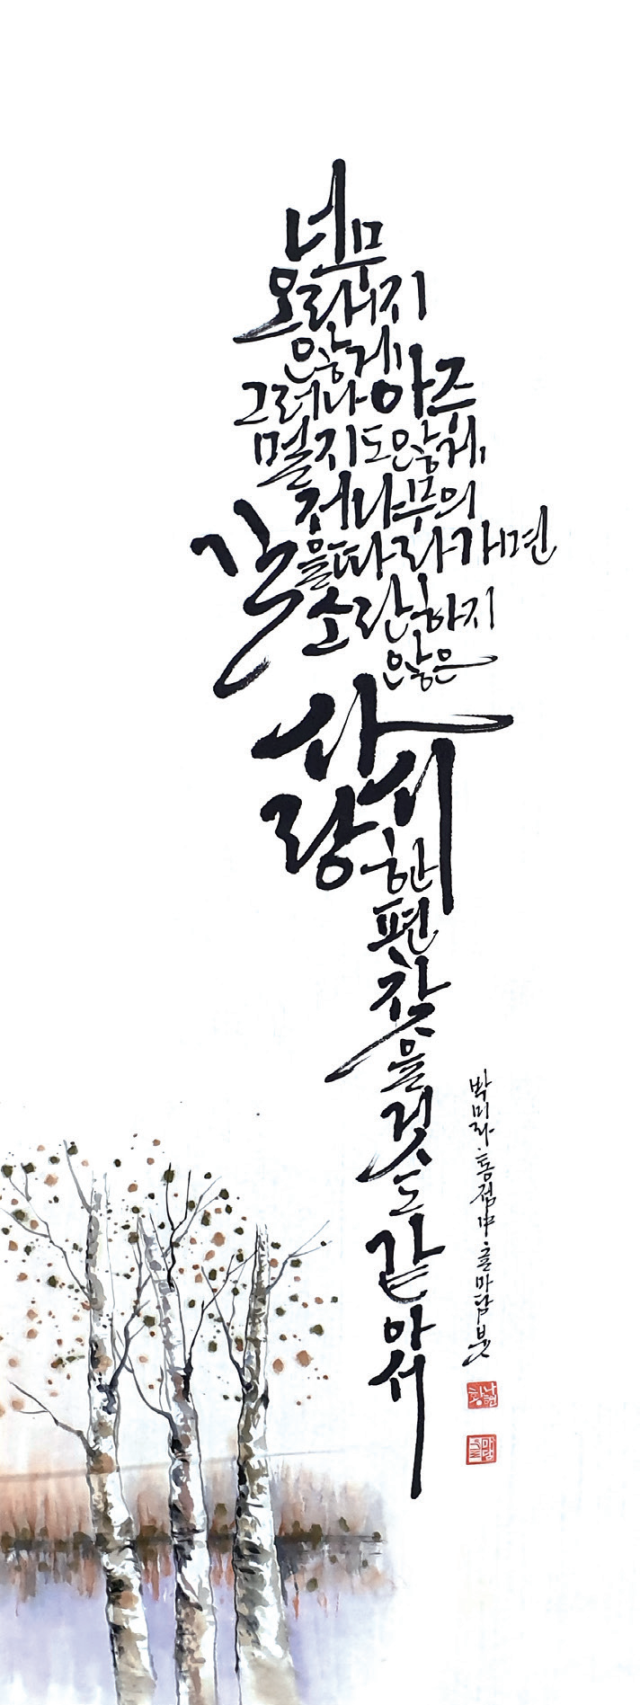 너무
오래지
않게
그러나 아주
멀지도 않게
전나무의
길을 따라가면
소란하지
않은
사랑
시
한
편
찾
을
것
도
같
아
서
박미라·통점中·흘마담 붓